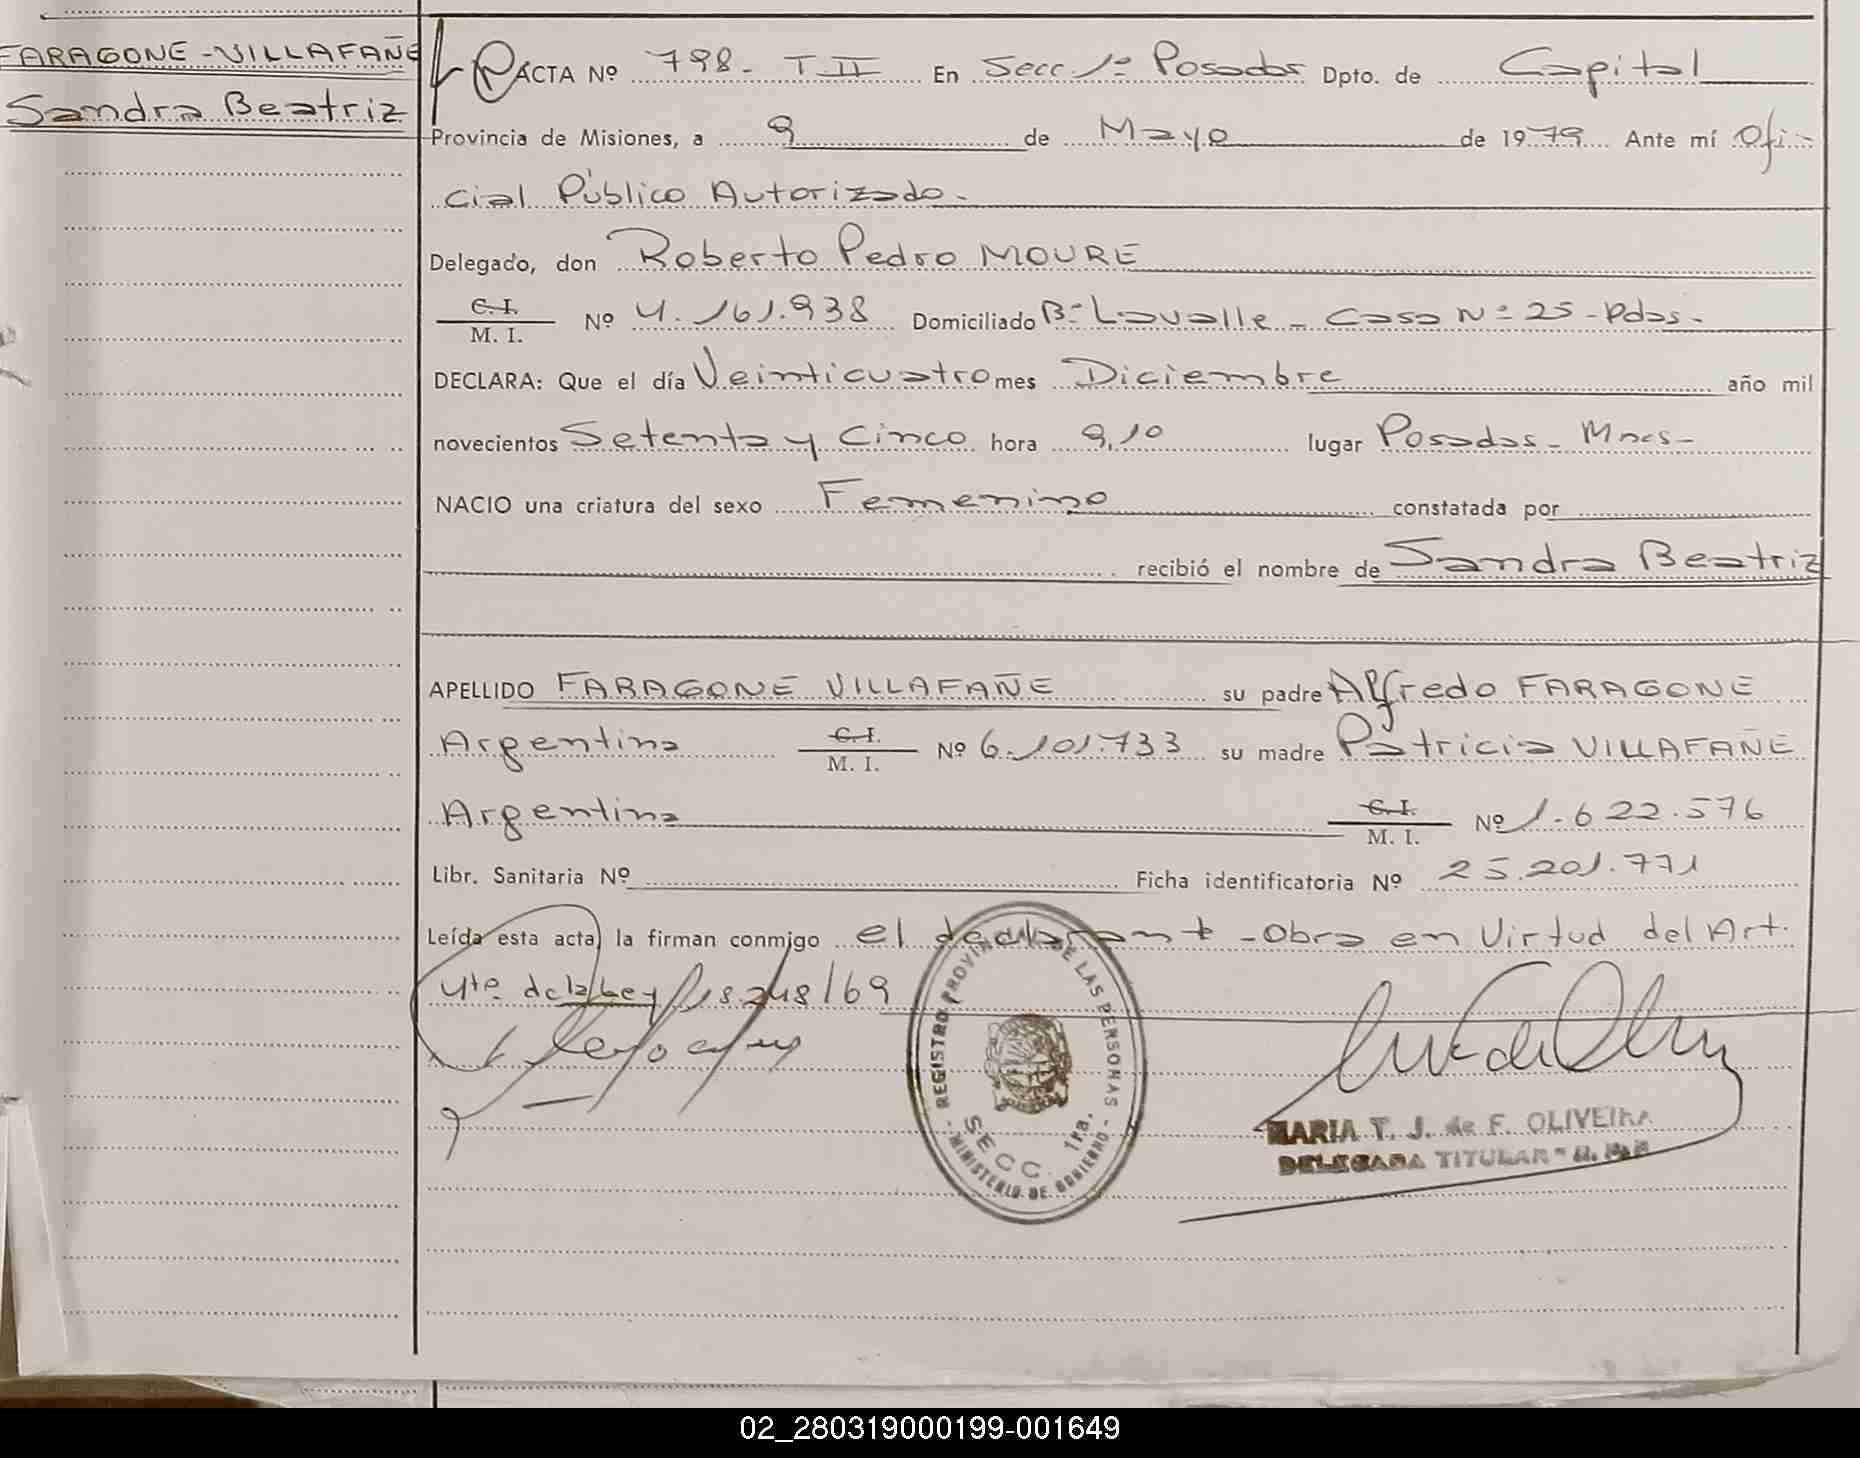 FARAGONE-VILLAFAÑE
Sandra Beatriz
ACTA Nº 798- T II En Secc 1ª Posadas Dpto. de Capital
Provincia de Misiones, a 9 de Mayo de 1979 Ante mí Ofi-
cial Público Autorizado.
Delegado, don Roberto Pedro MOURE
C.I.
M. I. Nº 4.161.938 Domiciliado Bº Lavalle - Casa Nº 25 - Pdas.
DECLARA: Que el día Veinticuatro mes Diciembre año mil
novecientos Setenta y Cinco hora 9,10 lugar Posadas - Mnes-
NACIO una criatura del sexo Femenino constatada por
recibió el nombre de Sandra Beatriz
APELLIDO FARAGONE VILLAFAÑE su padre Alfredo FARAGONE
Argentina C.I. M. I. Nº 6.101.733 su madre Patricia VILLAFAÑE
Argentina C.I. M. I. Nº 1.622.576
Libr. Sanitaria Nº Ficha identificatoria Nº 25.201.771
Leída esta acta, la firman conmigo el declarante - Obra en Virtud del Art.
4to. de la Ley 18.248/69
REGISTRO PROVINCIAL DE LAS PERSONAS
SECC. 1ra.
- MINISTERIO DE GOBIERNO -
MARIA T. J. de F. OLIVEIRA
DELEGADA TITULAR
02_280319000199-001649